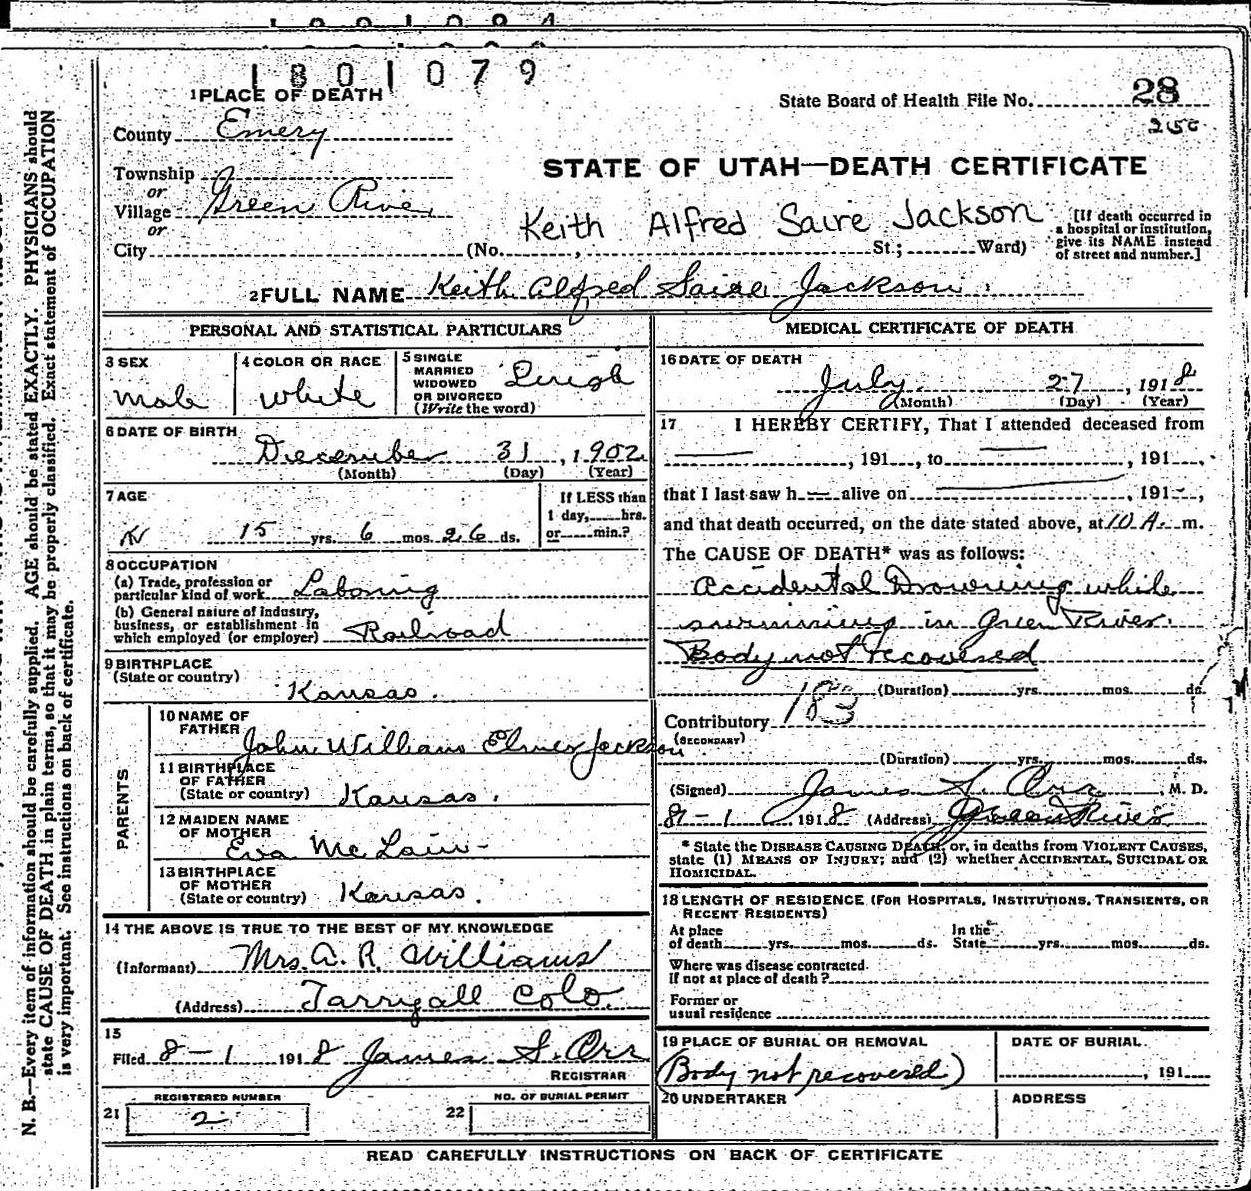 1801079
1 PLACE OF DEATH
State Board of Health File No. 28
250
County Emery
STATE OF UTAH—DEATH CERTIFICATE
Township
or
Village Green River
or
City
Keith Alfred Saire Jackson
(No. , St.; Ward)
[If death occurred in
a hospital or institution,
give its NAME instead
of street and number.]
2 FULL NAME Keith Alfred Saire Jackson
PERSONAL AND STATISTICAL PARTICULARS
3 SEX
Male
4 COLOR OR RACE
White
5 SINGLE
MARRIED
WIDOWED
OR DIVORCED
(Write the word)
Single
6 DATE OF BIRTH
December 31, 1902
(Month) (Day) (Year)
7 AGE
15 yrs. 6 mos. 26 ds.
If LESS than
1 day, hrs.
or min.?
8 OCCUPATION
(a) Trade, profession or
particular kind of work Laboring
(b) General nature of industry,
business, or establishment in
which employed (or employer) Railroad
9 BIRTHPLACE
(State or country)
Kansas.
PARENTS
10 NAME OF
FATHER
John William Elmer Jackson
11 BIRTHPLACE
OF FATHER
(State or country) Kansas.
12 MAIDEN NAME
OF MOTHER
Eva McLain
13 BIRTHPLACE
OF MOTHER
(State or country) Kansas.
14 THE ABOVE IS TRUE TO THE BEST OF MY KNOWLEDGE
(Informant) Mrs. A. R. Williams
(Address) Tarryall Colo.
15
Filed 8-1 1918 James S. Orr
REGISTRAR
REGISTERED NUMBER
21 2
NO. OF BURIAL PERMIT
22
MEDICAL CERTIFICATE OF DEATH
16 DATE OF DEATH
July 27, 1918
(Month) (Day) (Year)
17 I HEREBY CERTIFY, That I attended deceased from
, 191 , to , 191 ,
that I last saw h alive on , 191 ,
and that death occurred, on the date stated above, at 10 A. m.
The CAUSE OF DEATH* was as follows:
Accidental Drowning while
swimming in Green River.
Body not recovered
(Duration) yrs. mos. ds.
Contributory 183
(SECONDARY)
(Duration) yrs. mos. ds.
(Signed) James S. Orr, M. D.
8-1 1918 (Address) Green River
* State the DISEASE CAUSING DEATH, or, in deaths from VIOLENT CAUSES,
state (1) MEANS OF INJURY; and (2) whether ACCIDENTAL, SUICIDAL OR
HOMICIDAL.
18 LENGTH OF RESIDENCE (FOR HOSPITALS, INSTITUTIONS, TRANSIENTS, OR
RECENT RESIDENTS)
At place
of death yrs. mos. ds.
In the
State yrs. mos. ds.
Where was disease contracted
if not at place of death?
Former or
usual residence
19 PLACE OF BURIAL OR REMOVAL
(Body not recovered)
DATE OF BURIAL
, 191
20 UNDERTAKER
ADDRESS
READ CAREFULLY INSTRUCTIONS ON BACK OF CERTIFICATE
N. B.—Every item of information should be carefully supplied. AGE should be stated EXACTLY. PHYSICIANS should
state CAUSE OF DEATH in plain terms, so that it may be properly classified. Exact statement of OCCUPATION
is very important. See instructions on back of certificate.